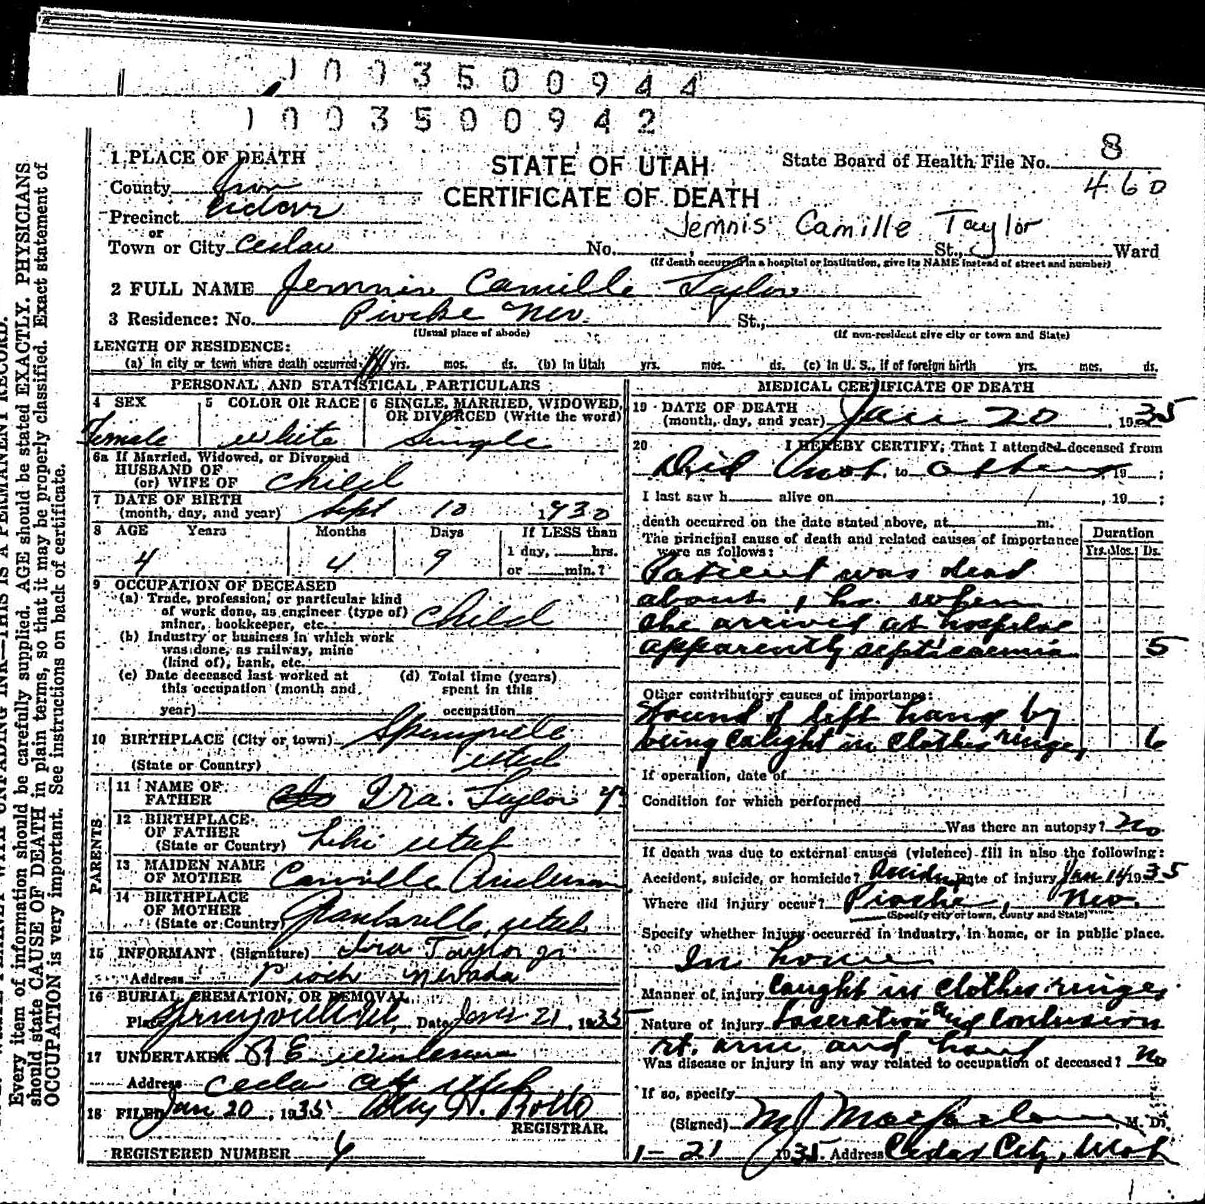 1003500944
1003500942
1 PLACE OF DEATH
STATE OF UTAH
CERTIFICATE OF DEATH
State Board of Health File No. 8
460
County Iron
Precinct
or
Town or City Cedar No. St., Ward
Jennis Camille Taylor
(If death occurred in a hospital or institution, give its NAME instead of street and number)
2 FULL NAME Jennis Camille Taylor
3 Residence: No. Pioche Nev. St.,
(Usual place of abode) (If non-resident give city or town and State)
LENGTH OF RESIDENCE:
(a) In city or town where death occurred yrs. mos. ds. (b) In Utah yrs. mos. ds. (c) In U. S., if of foreign birth yrs. mos. ds.
PERSONAL AND STATISTICAL PARTICULARS
4 SEX 5 COLOR OR RACE 6 SINGLE, MARRIED, WIDOWED, OR DIVORCED (Write the word)
Female white Single
6a If Married, Widowed, or Divorced
HUSBAND OF
(or) WIFE OF child
7 DATE OF BIRTH
(month, day, and year) Sept 10 1930
8 AGE Years Months Days If LESS than
1 day, hrs.
4 4 9 or min.?
9 OCCUPATION OF DECEASED
(a) Trade, profession, or particular kind
of work done, as engineer (type of)
miner, bookkeeper, etc. child
(b) Industry or business in which work
was done, as railway, mine
(kind of), bank, etc.
(c) Date deceased last worked at
this occupation (month and
year)
(d) Total time (years)
spent in this
occupation
10 BIRTHPLACE (City or town) Springville
(State or Country) Utah
PARENTS
11 NAME OF
FATHER Ira Taylor
12 BIRTHPLACE
OF FATHER
(State or Country) Lehi Utah
13 MAIDEN NAME
OF MOTHER Camille Anderson
14 BIRTHPLACE
OF MOTHER
(State or Country) Utah
15 INFORMANT (Signature) Ira Taylor Jr
Address Pioch Nevada
16 BURIAL, CREMATION, OR REMOVAL
Place Springville Ut, Date Jan 21, 1935
17 UNDERTAKER
Address Cedar City Utah
18 FILED Jan 20, 1935
REGISTRAR.
REGISTERED NUMBER
MEDICAL CERTIFICATE OF DEATH
19 DATE OF DEATH
(month, day, and year) Jan 20, 1935
20 I HEREBY CERTIFY, That I attended deceased from
Did not to attend, 19 ;
I last saw h alive on , 19 ;
death occurred on the date stated above, at m.
The principal cause of death and related causes of importance
were as follows:
Duration
Yrs. Mos. Ds.
Patient was dead
about 1 hr. when
she arrived at hospital
apparently septicaemia 5
Other contributory causes of importance:
Wound of left hand by
being caught in clothes ringer, 6
If operation, date of
Condition for which performed
Was there an autopsy? No
If death was due to external causes (violence) fill in also the following:
Accident, suicide, or homicide? Date of injury Jan 14 1935
Where did injury occur? Pioche, Nev.
(Specify city or town, county and State)
Specify whether injury occurred in industry, in home, or in public place.
In home
Manner of injury Caught in clothes ringer
Nature of injury Laceration and Contusion
rt. arm and hand
Was disease or injury in any way related to occupation of deceased? No
If so, specify
(Signed) M J Macfarlane, M. D.
1-21 1935 Address Cedar City, Utah
Every item of information should be carefully supplied. AGE should be stated EXACTLY. PHYSICIANS
should state CAUSE OF DEATH in plain terms, so that it may be properly classified. Exact statement of
OCCUPATION is very important. See instructions on back of certificate.